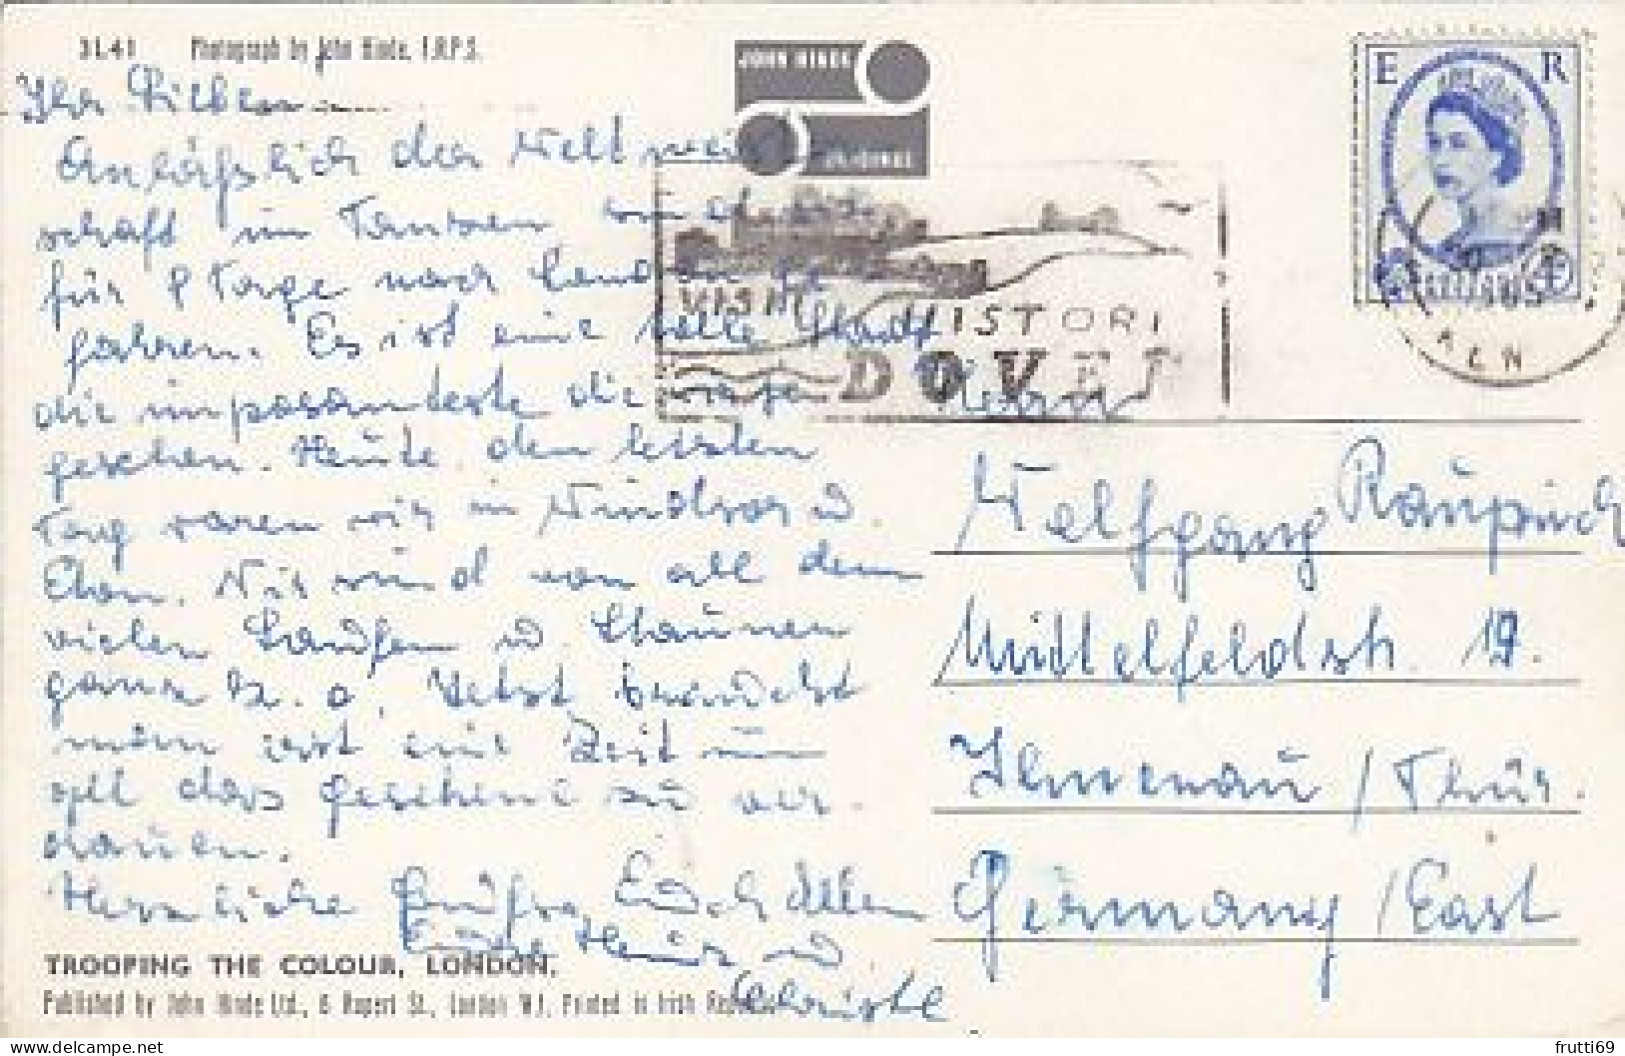 3L41 Photograph by John Hinde, F.R.P.S.
JOHN HINDE
ORIGINAL
E R
Ihr Lieben
Anläßlich der Weltmei
schaft im Tanzen sind
für 8 Tage nach London ge
fahren. Es ist eine tolle Stadt
die imposanteste die wir je
gesehen. Heute, den letzten
Tag waren wir in Windsor u.
Eton. Wir sind von all dem
vielen Laufen u. Staunen
ganz k. o. Jetzt braucht
man erst eine Zeit um
all das Gesehene zu ver-
dauen.
Herzliche Grüße Euch allen
Eure Heinz u.
Christl
VISIT HISTORI
DOVER
Herrn
Wolfgang
Mittelfeldstr. 19.
Ilmenau / Thür.
Germany / East
TROOPING THE COLOUR, LONDON.
Published by John Hinde Ltd., 6 Rupert St., London W.1. Printed in Irish Republic
frutti69